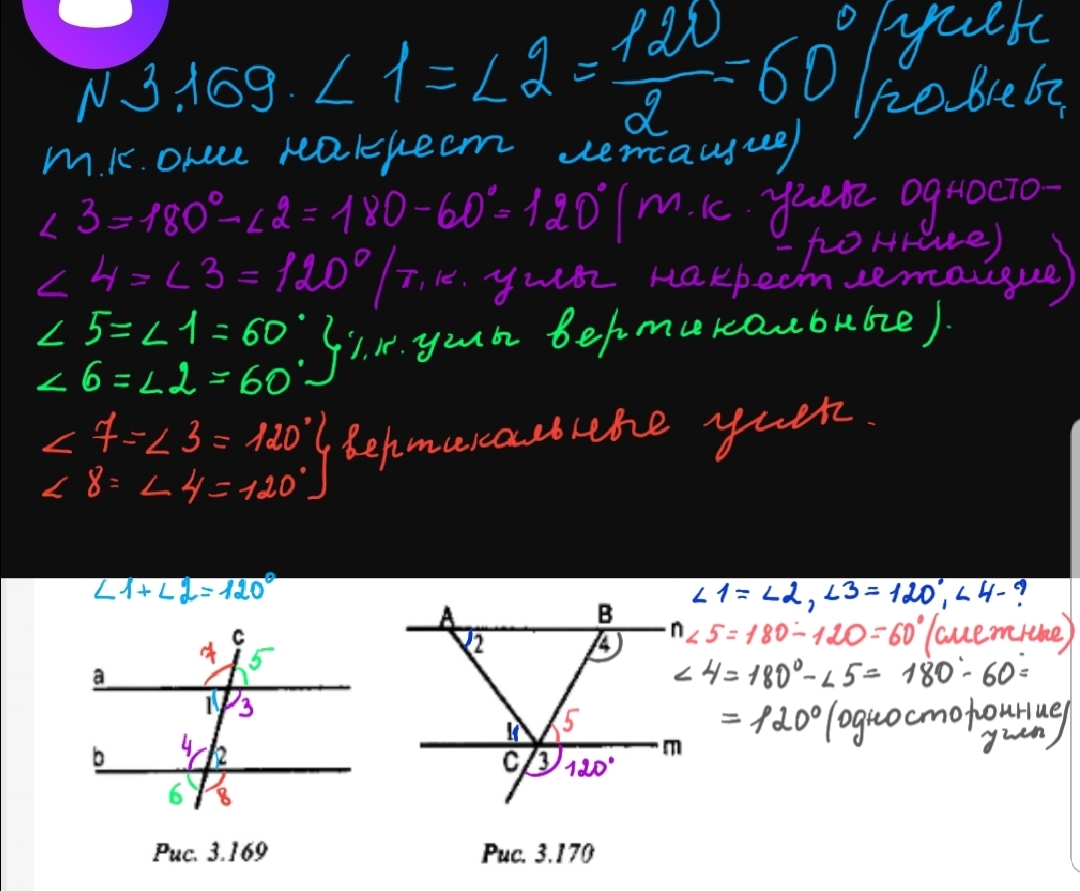 N3.169. ∠1=∠2=120/2=60° (углы равны,
т.к. они накрест лежащие)
∠3=180°-∠2=180-60°=120° (т.к. углы односто-
-ронние)
∠4=∠3=120° (т.к. углы накрест лежащие)
∠5=∠1=60° } т.к. углы вертикальные).
∠6=∠2=60°
∠7=∠3=120° } вертикальные углы.
∠8=∠4=120°
∠1+∠2=120°
c
7 5
a
1 3
4 2
b
6 8
Рис. 3.169
A B
n
2 4
1 5
m
C 3 120°
Рис. 3.170
∠1=∠2, ∠3=120°, ∠4-?
∠5=180-120=60° (смежные)
∠4=180°-∠5=180°-60=
=120° (односторонние
углы)